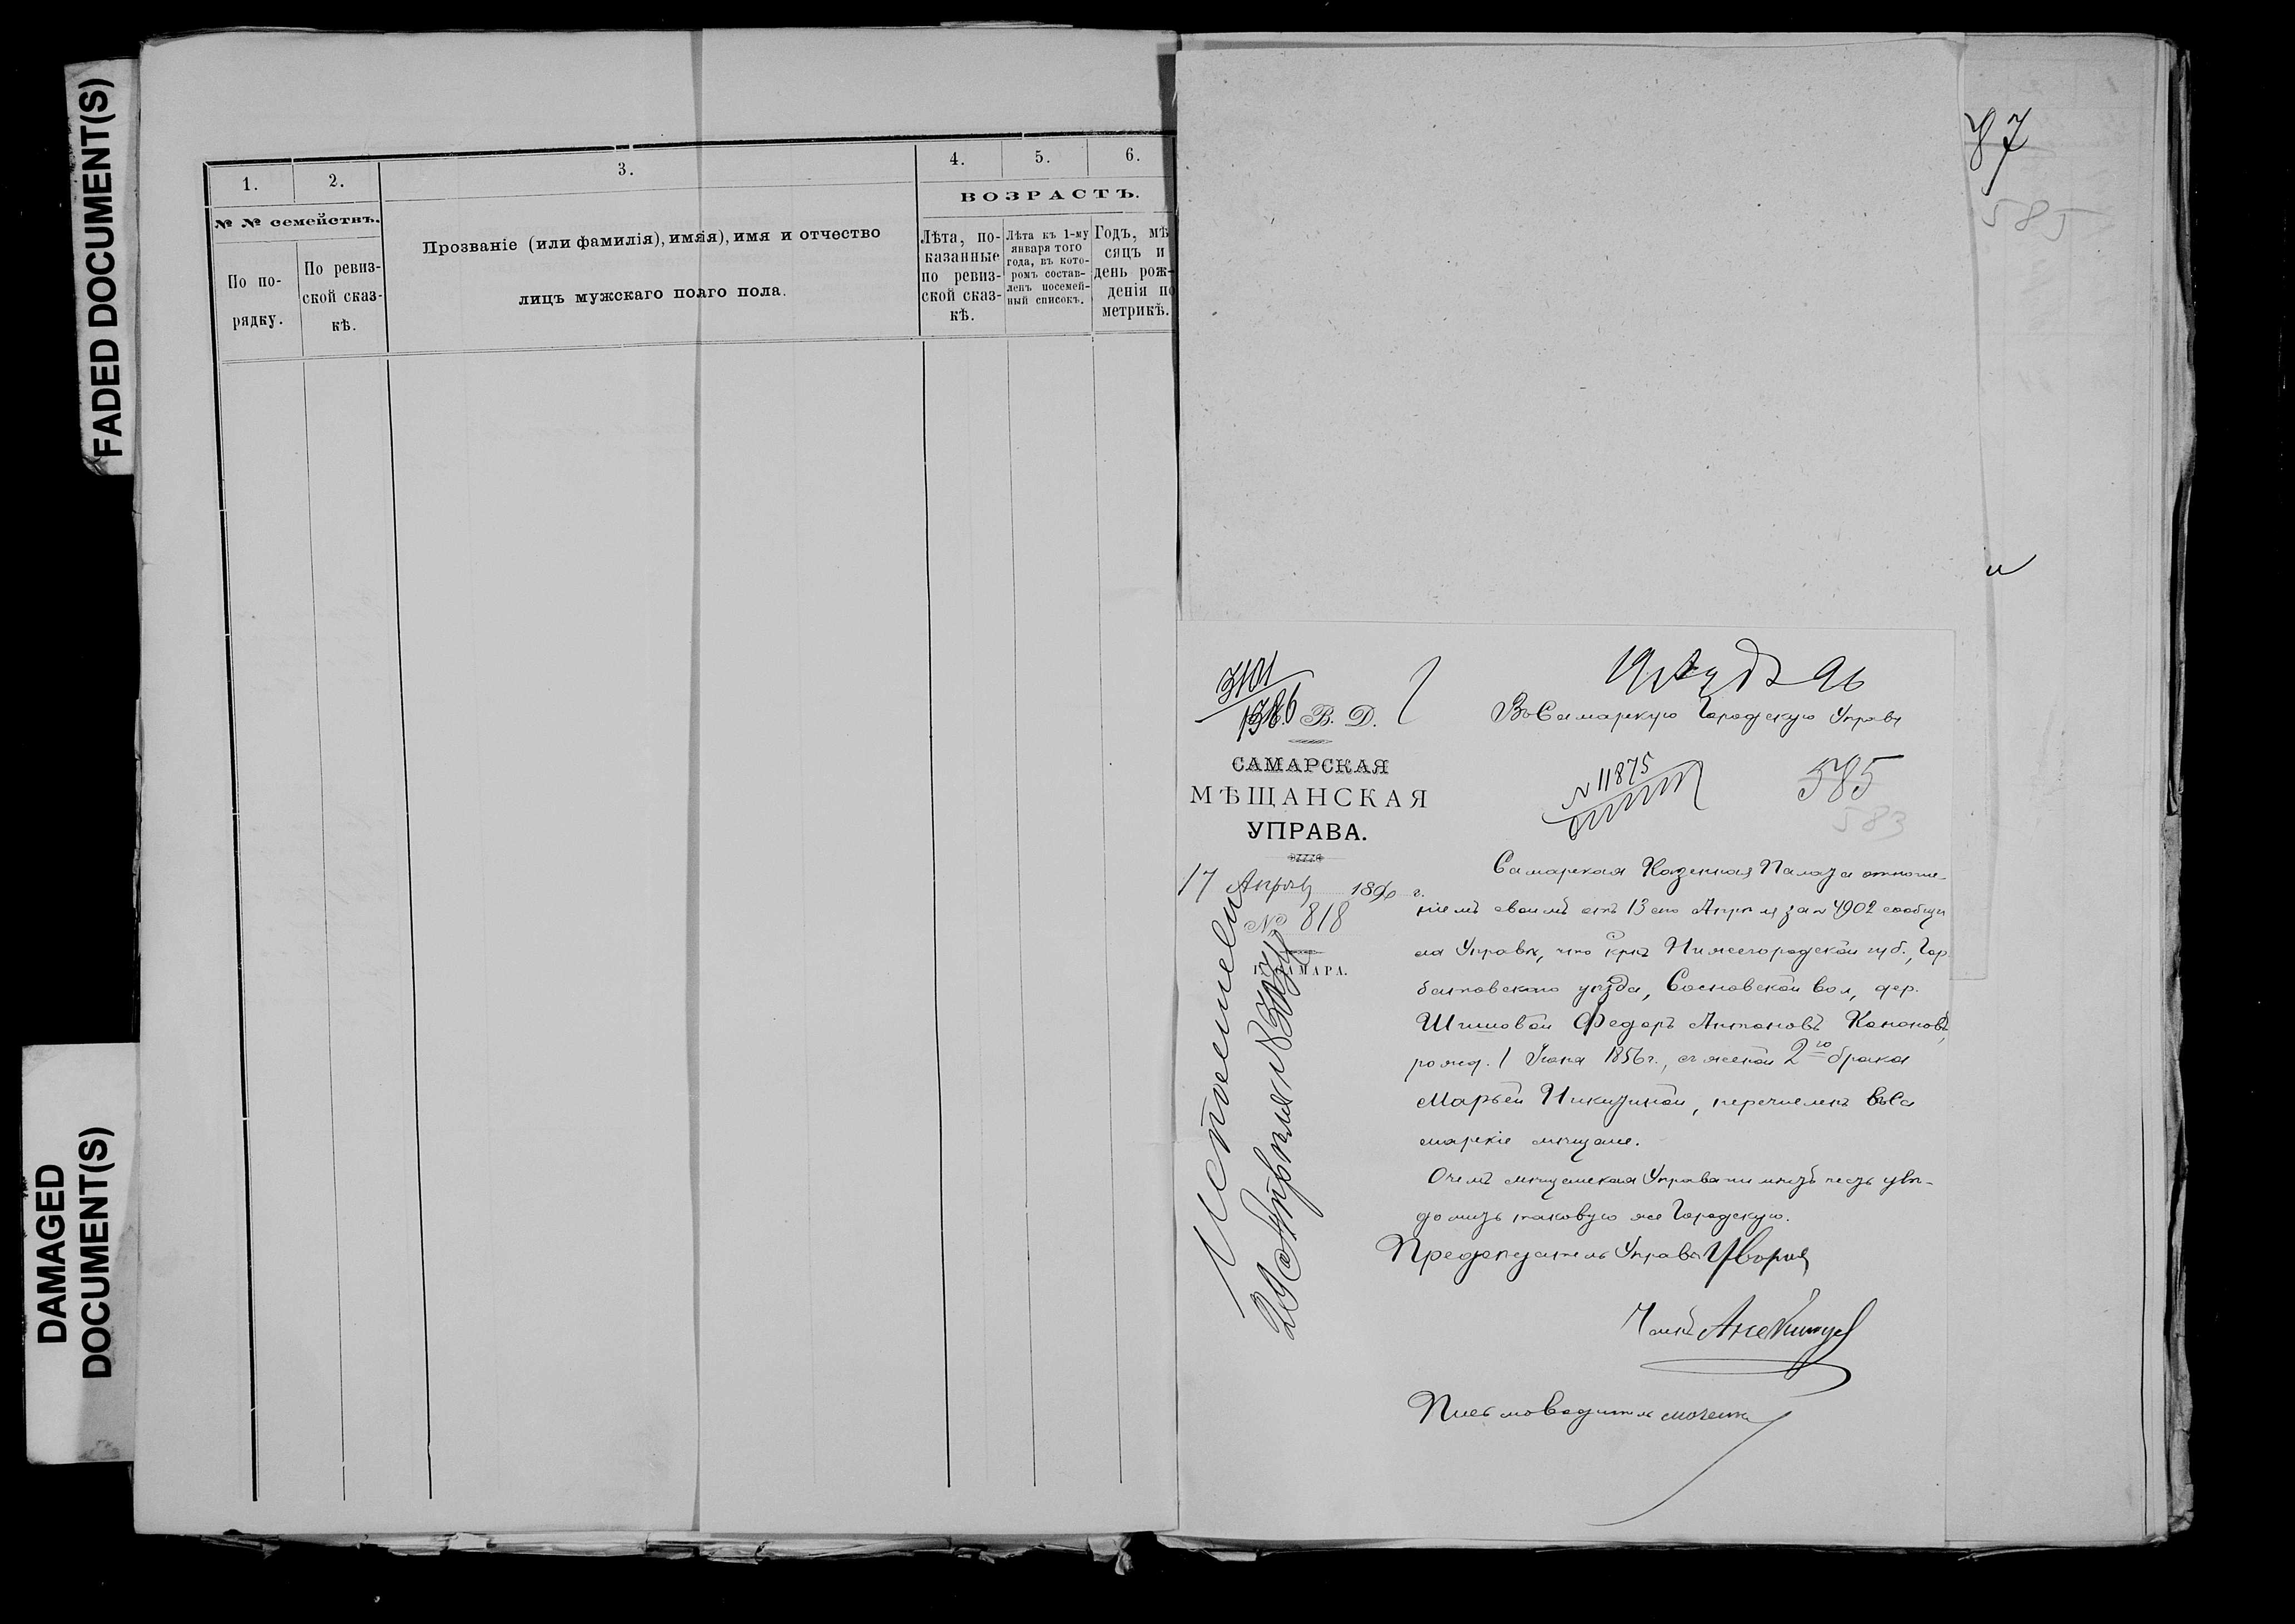 FADED DOCUMENT(S)
DAMAGED
DOCUMENT(S)
1.
2.
3.
4.
5.
6.
№ № семействъ.
ВОЗРАСТЪ.
По по-
рядку.
По ревиз-
ской сказ-
кѣ.
Прозваніе (или фамилія), имяія), имя и отчество
лицъ мужскаго полго пола.
Лѣта, по-
казанные
по ревиз-
ской сказ-
кѣ.
Лѣта къ 1-му
января того
года, въ кото-
ромъ состав-
ленъ посемей-
ный списокъ.
Годъ, мѣ
сяцъ и
день рож-
денія по
метрикѣ.
87
585
3101
1386
В. Д.
САМАРСКАЯ
МѢЩАНСКАЯ
УПРАВА.
17 Апрѣля 1890 г.
№ 818
Г. САМАРА.
Въ Самарскую Городскую Управу
№ 11875
585
583
Самарская Казенная Палата отноше-
ніемъ своимъ отъ 13 сего Апрѣля за № 4902 сообщи
ла Управѣ, что кр. Нижегородской губ., Гор
батовскаго уѣзда, Сосновской вол, дер.
Шишовой Федоръ Антоновъ Кононовъ,
рожд. 1 Іюня 1856 г., съ женой 2го брака
Марьей Никитиной, перечисленъ въ Са
марскіе мѣщане.
О чемъ мѣщанская Управа имѣетъ честь увѣ-
домить таковую же Городскую.
Предсѣдатель Управы
Членъ
Письмоводитель
29 Апрѣля